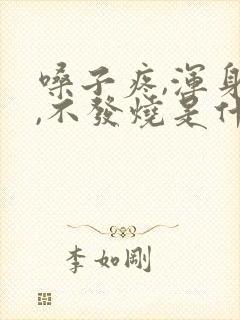 嗓子疼,渾身
,不發燒是什
李如剛